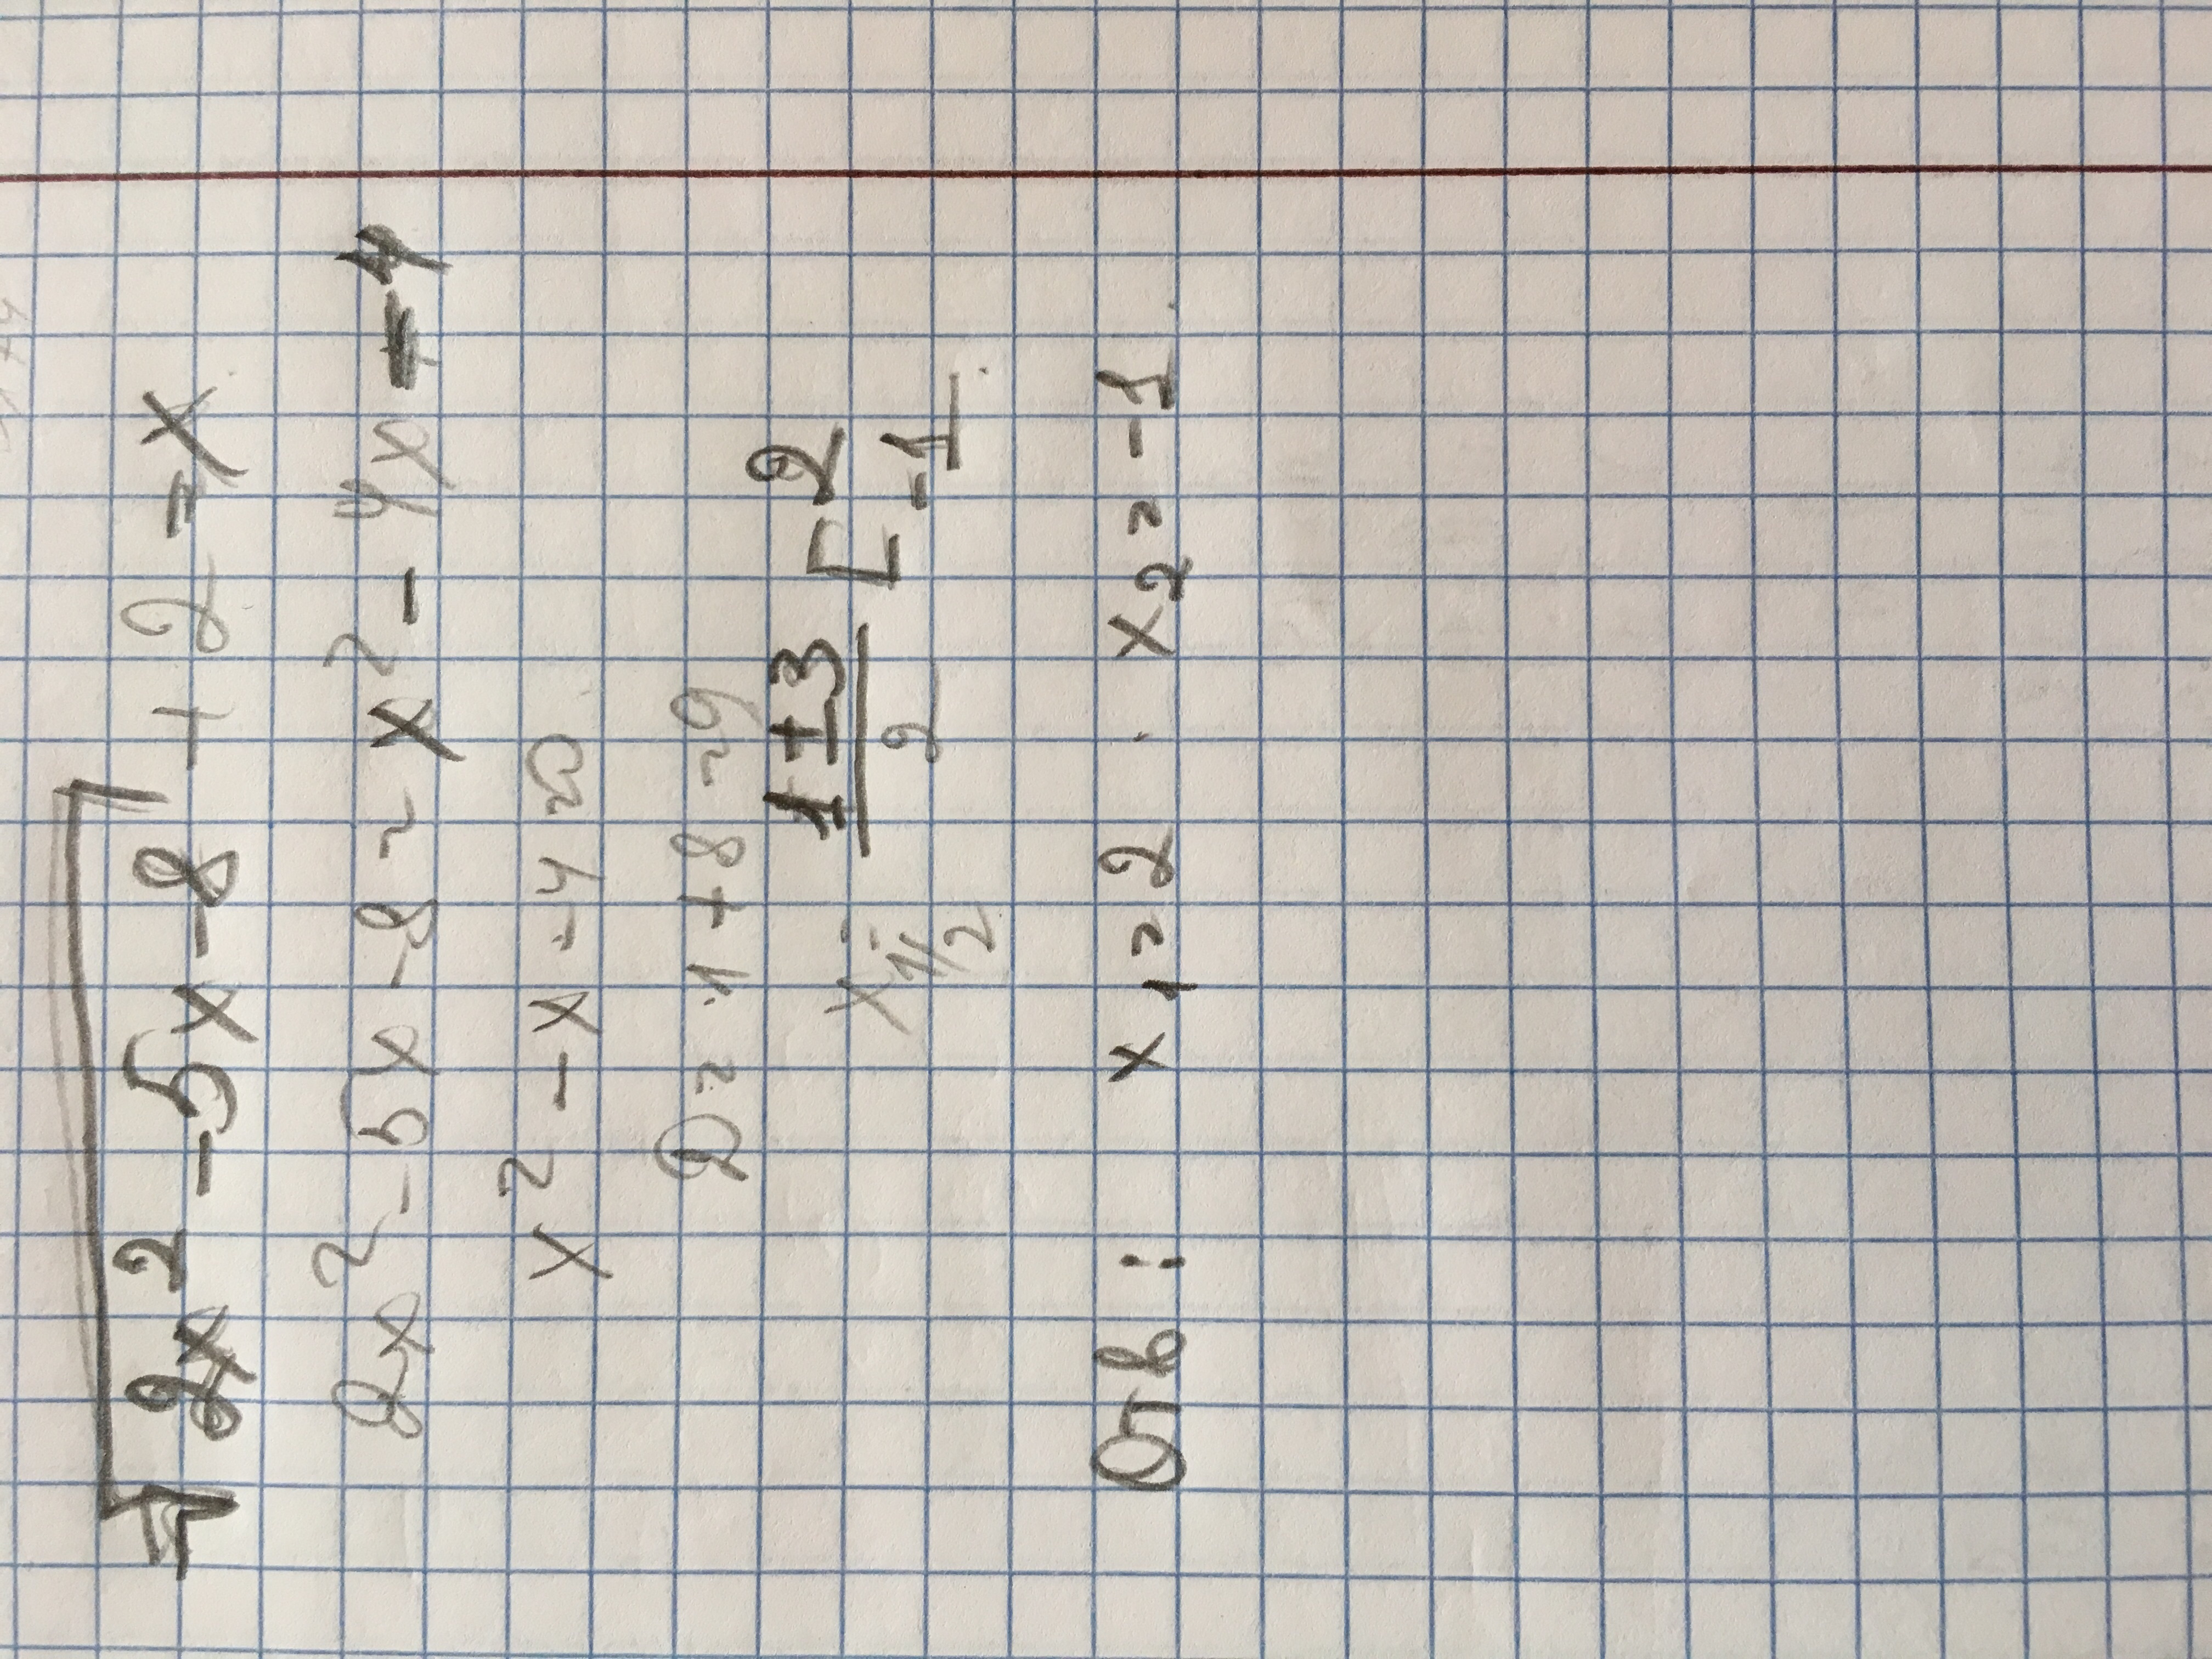 √(2x² - 5x - 8) + 2 = x
2x² - 5x - 8 = x² - 4x = 4
x² - x - 4 = 0
D = 1 + 8 = 9
x₁/₂ = (1 ± 3)/2 [ 2 -1
Отв : x₁ = 2 x₂ = -1